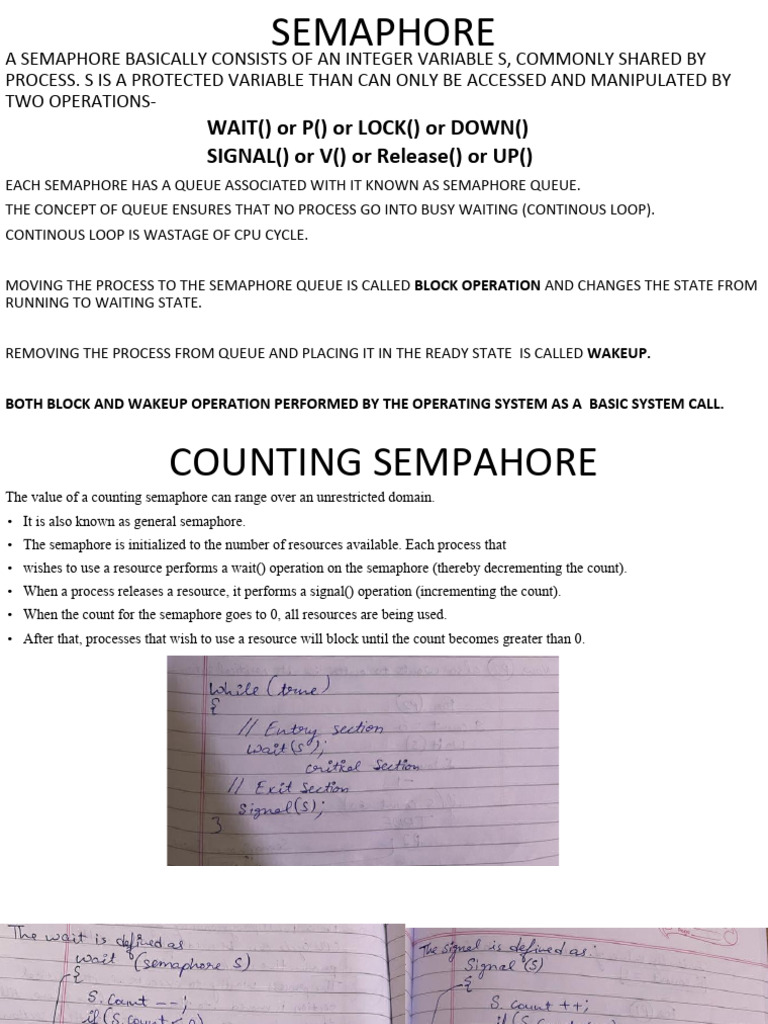 SEMAPHORE
A SEMAPHORE BASICALLY CONSISTS OF AN INTEGER VARIABLE S, COMMONLY SHARED BY
PROCESS. S IS A PROTECTED VARIABLE THAN CAN ONLY BE ACCESSED AND MANIPULATED BY
TWO OPERATIONS-
WAIT() or P() or LOCK() or DOWN()
SIGNAL() or V() or Release() or UP()
EACH SEMAPHORE HAS A QUEUE ASSOCIATED WITH IT KNOWN AS SEMAPHORE QUEUE.
THE CONCEPT OF QUEUE ENSURES THAT NO PROCESS GO INTO BUSY WAITING (CONTINOUS LOOP).
CONTINOUS LOOP IS WASTAGE OF CPU CYCLE.
MOVING THE PROCESS TO THE SEMAPHORE QUEUE IS CALLED BLOCK OPERATION AND CHANGES THE STATE FROM
RUNNING TO WAITING STATE.
REMOVING THE PROCESS FROM QUEUE AND PLACING IT IN THE READY STATE IS CALLED WAKEUP.
BOTH BLOCK AND WAKEUP OPERATION PERFORMED BY THE OPERATING SYSTEM AS A BASIC SYSTEM CALL.
COUNTING SEMPAHORE
The value of a counting semaphore can range over an unrestricted domain.
• It is also known as general semaphore.
• The semaphore is initialized to the number of resources available. Each process that
• wishes to use a resource performs a wait() operation on the semaphore (thereby decrementing the count).
• When a process releases a resource, it performs a signal() operation (incrementing the count).
• When the count for the semaphore goes to 0, all resources are being used.
• After that, processes that wish to use a resource will block until the count becomes greater than 0.
While (true)
{
// Entry section
wait(s);
critical Section
// Exit Section
Signal(s);
}
The wait is defined as
wait (semaphore S)
{
S.count --;
if (S.count < 0)
The Signal is defined as:
Signal (S)
{
S. count ++;